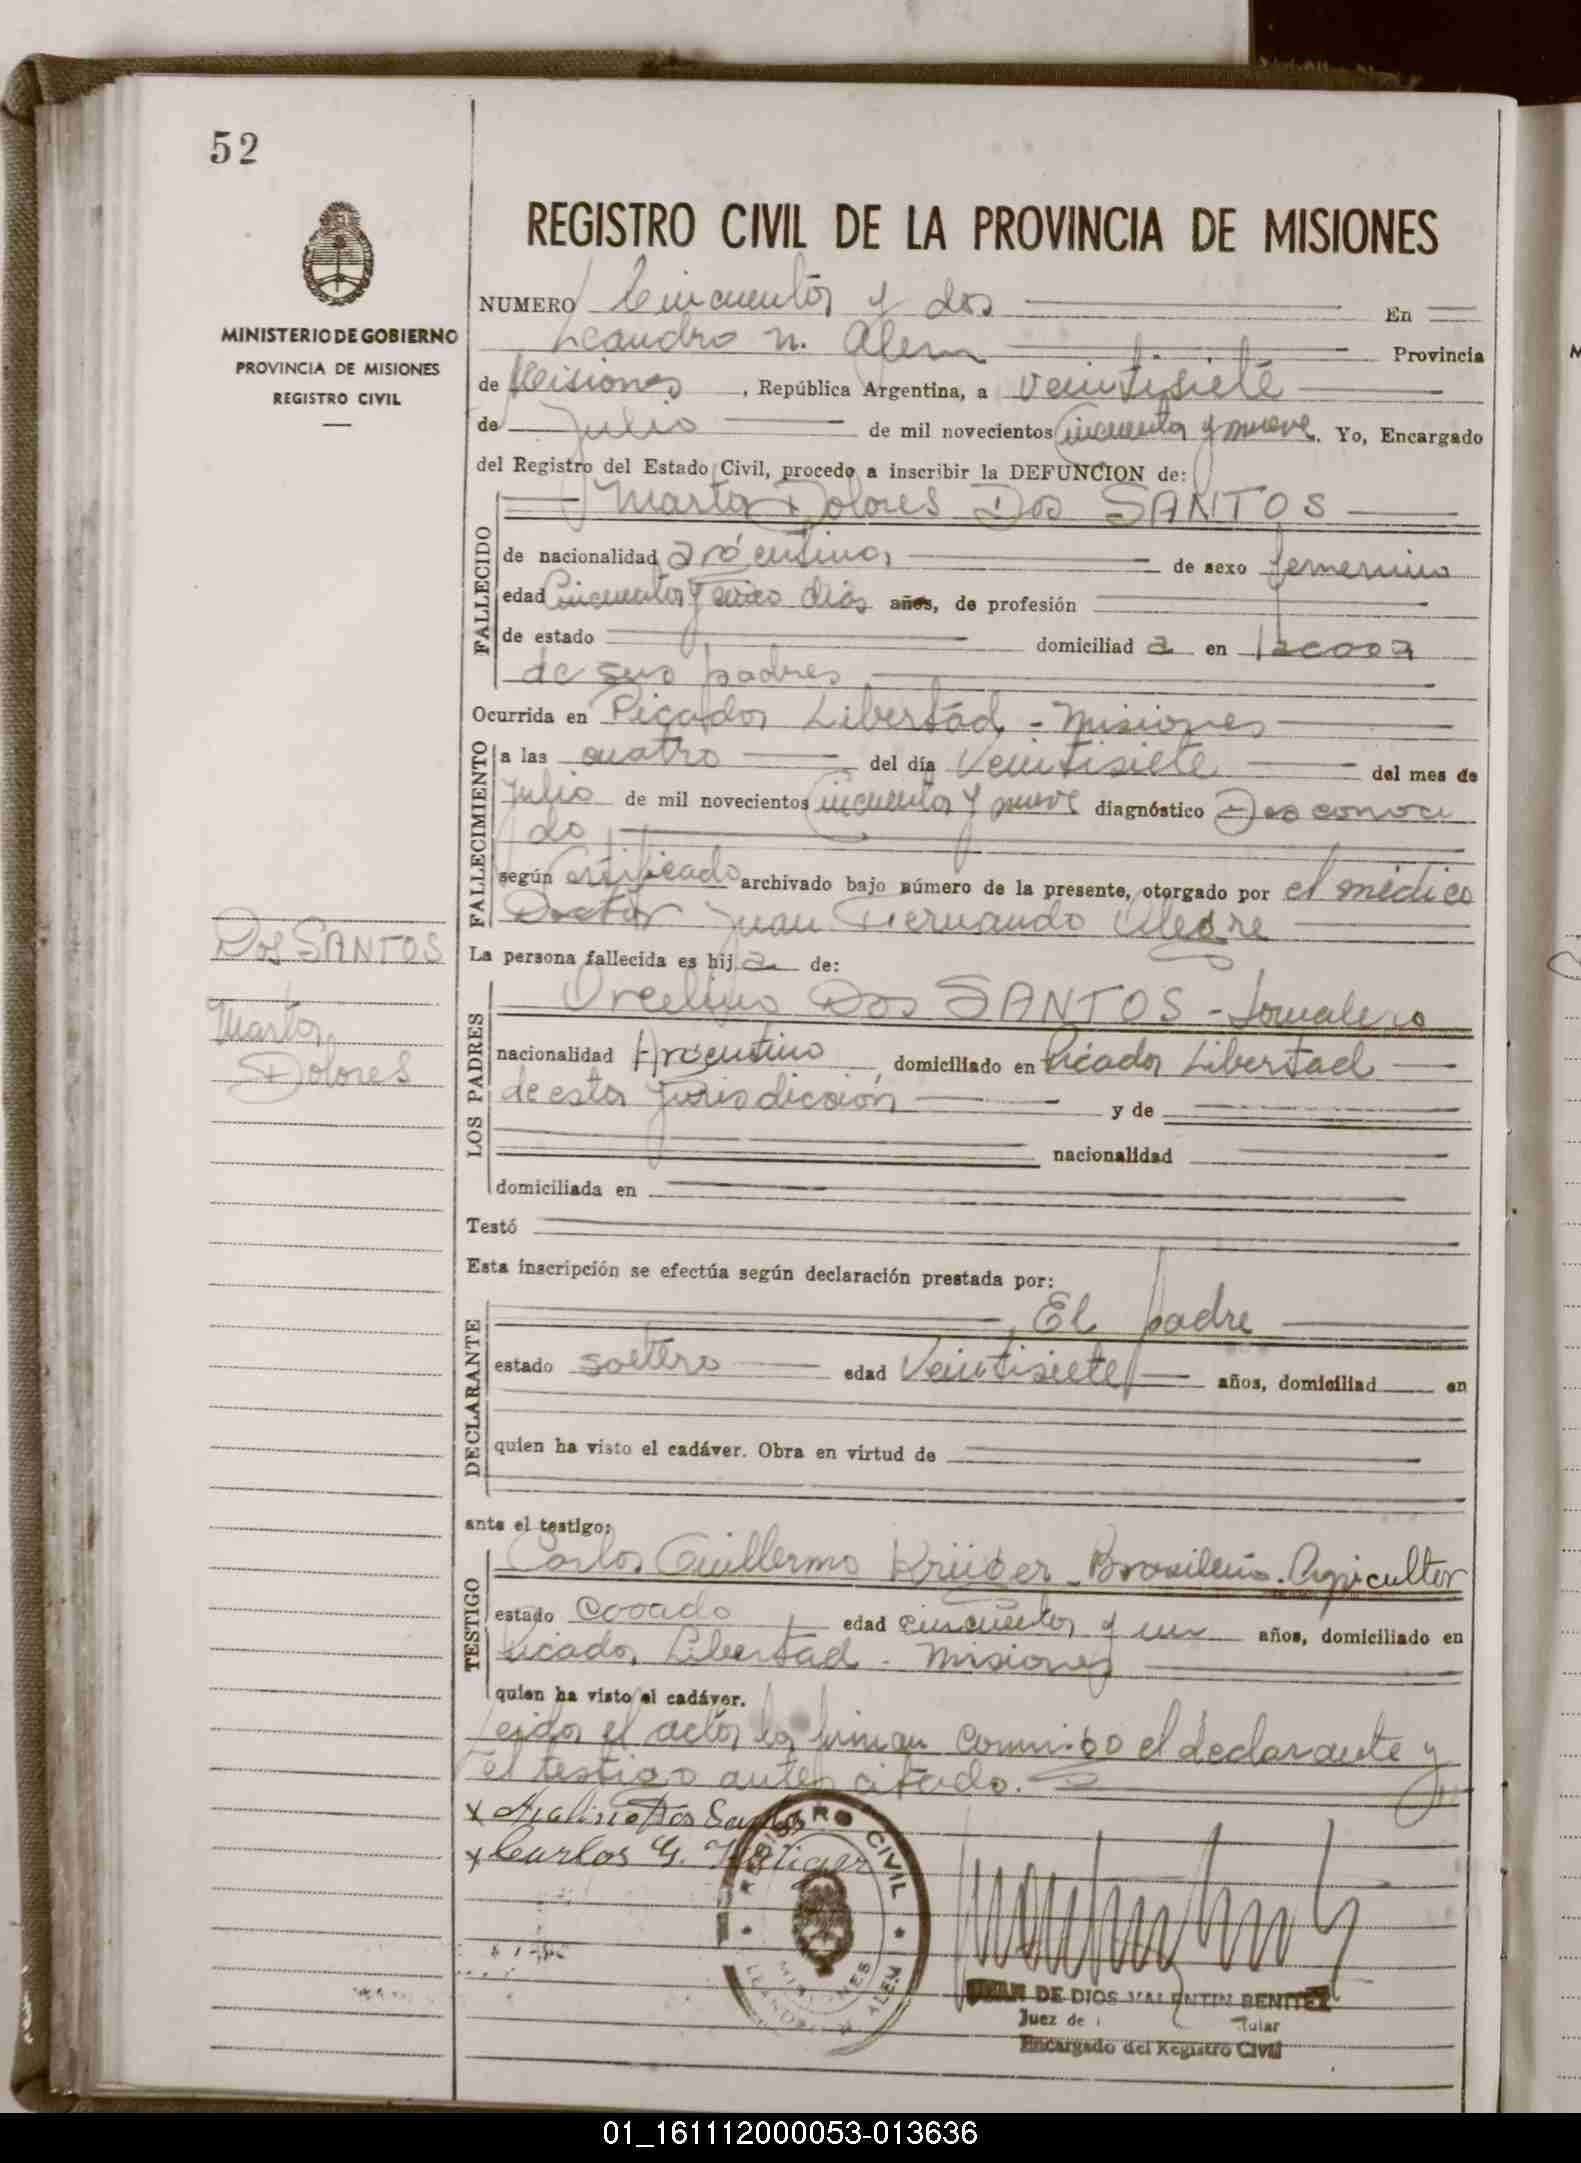 52
MINISTERIO DE GOBIERNO
PROVINCIA DE MISIONES
REGISTRO CIVIL
REGISTRO CIVIL DE LA PROVINCIA DE MISIONES
NUMERO Cincuenta y dos En
Leandro N. Alem Provincia
de Misiones, República Argentina, a veintisiete
de Julio de mil novecientos cincuenta y nueve. Yo, Encargado
del Registro del Estado Civil, procedo a inscribir la DEFUNCION de:
Marta Dolores Dos SANTOS
FALLECIDO
de nacionalidad argentina de sexo femenino
edad Cincuenta y cinco días años, de profesión
de estado domiciliad a en la casa
de sus padres
Ocurrida en Picada Libertad - Misiones
FALLECIMIENTO
a las cuatro del día Veintisiete del mes de
Julio de mil novecientos cincuenta y nueve diagnóstico Desconoci
do
según Certificado archivado bajo número de la presente, otorgado por el médico
Doctor Juan Fernando Alegre
DOS SANTOS
Marta
Dolores
La persona fallecida es hij a de:
LOS PADRES
Dos SANTOS - Jornalero
nacionalidad Argentino, domiciliado en Picada Libertad
de esta Jurisdicción y de
nacionalidad
domiciliada en
Testó
Esta inscripción se efectúa según declaración prestada por:
DECLARANTE
El padre
estado soltero edad Veintisiete años, domiciliad en
quien ha visto el cadáver. Obra en virtud de
ante el testigo:
TESTIGO
Carlos Guillermo Krüger - Brasileño - Agricultor
estado casado edad cincuenta y un años, domiciliado en
Picada Libertad - Misiones
quien ha visto el cadáver.
Leida el acta la firman conmigo el declarante y
el testigo antes citado.
x Dos Santos
x Carlos G.
REGISTRO CIVIL
MISIONES
LEANDRO N. ALEM
JUAN DE DIOS VALENTIN BENITEZ
Juez de Titular
Encargado del Registro Civil
01_161112000053-013636